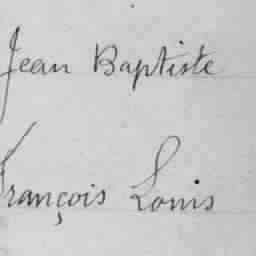 Jean Baptiste
François Louis